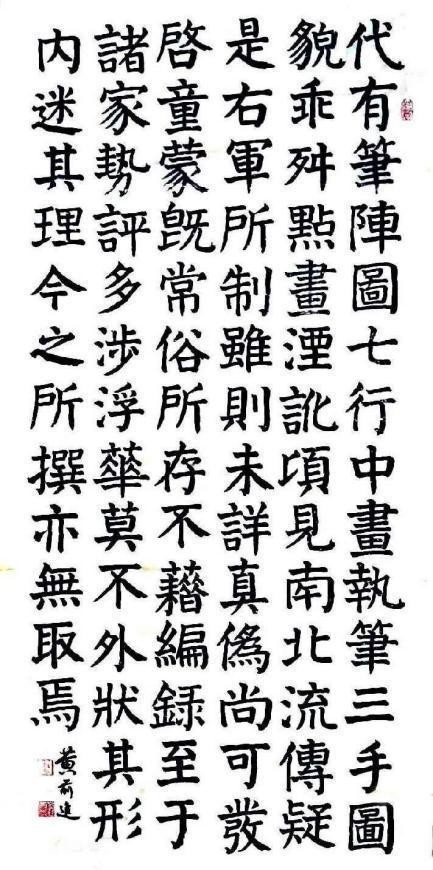 代有筆陣圖七行中畫執筆三手圖
貌乖舛點畫湮訛頃見南北流傳疑
是右軍所制雖則未詳真偽尚可發
啓童蒙既常俗所存不藉編録至于
諸家勢評多涉浮華莫不外狀其形
内迷其理今之所撰亦無取焉
黄前進